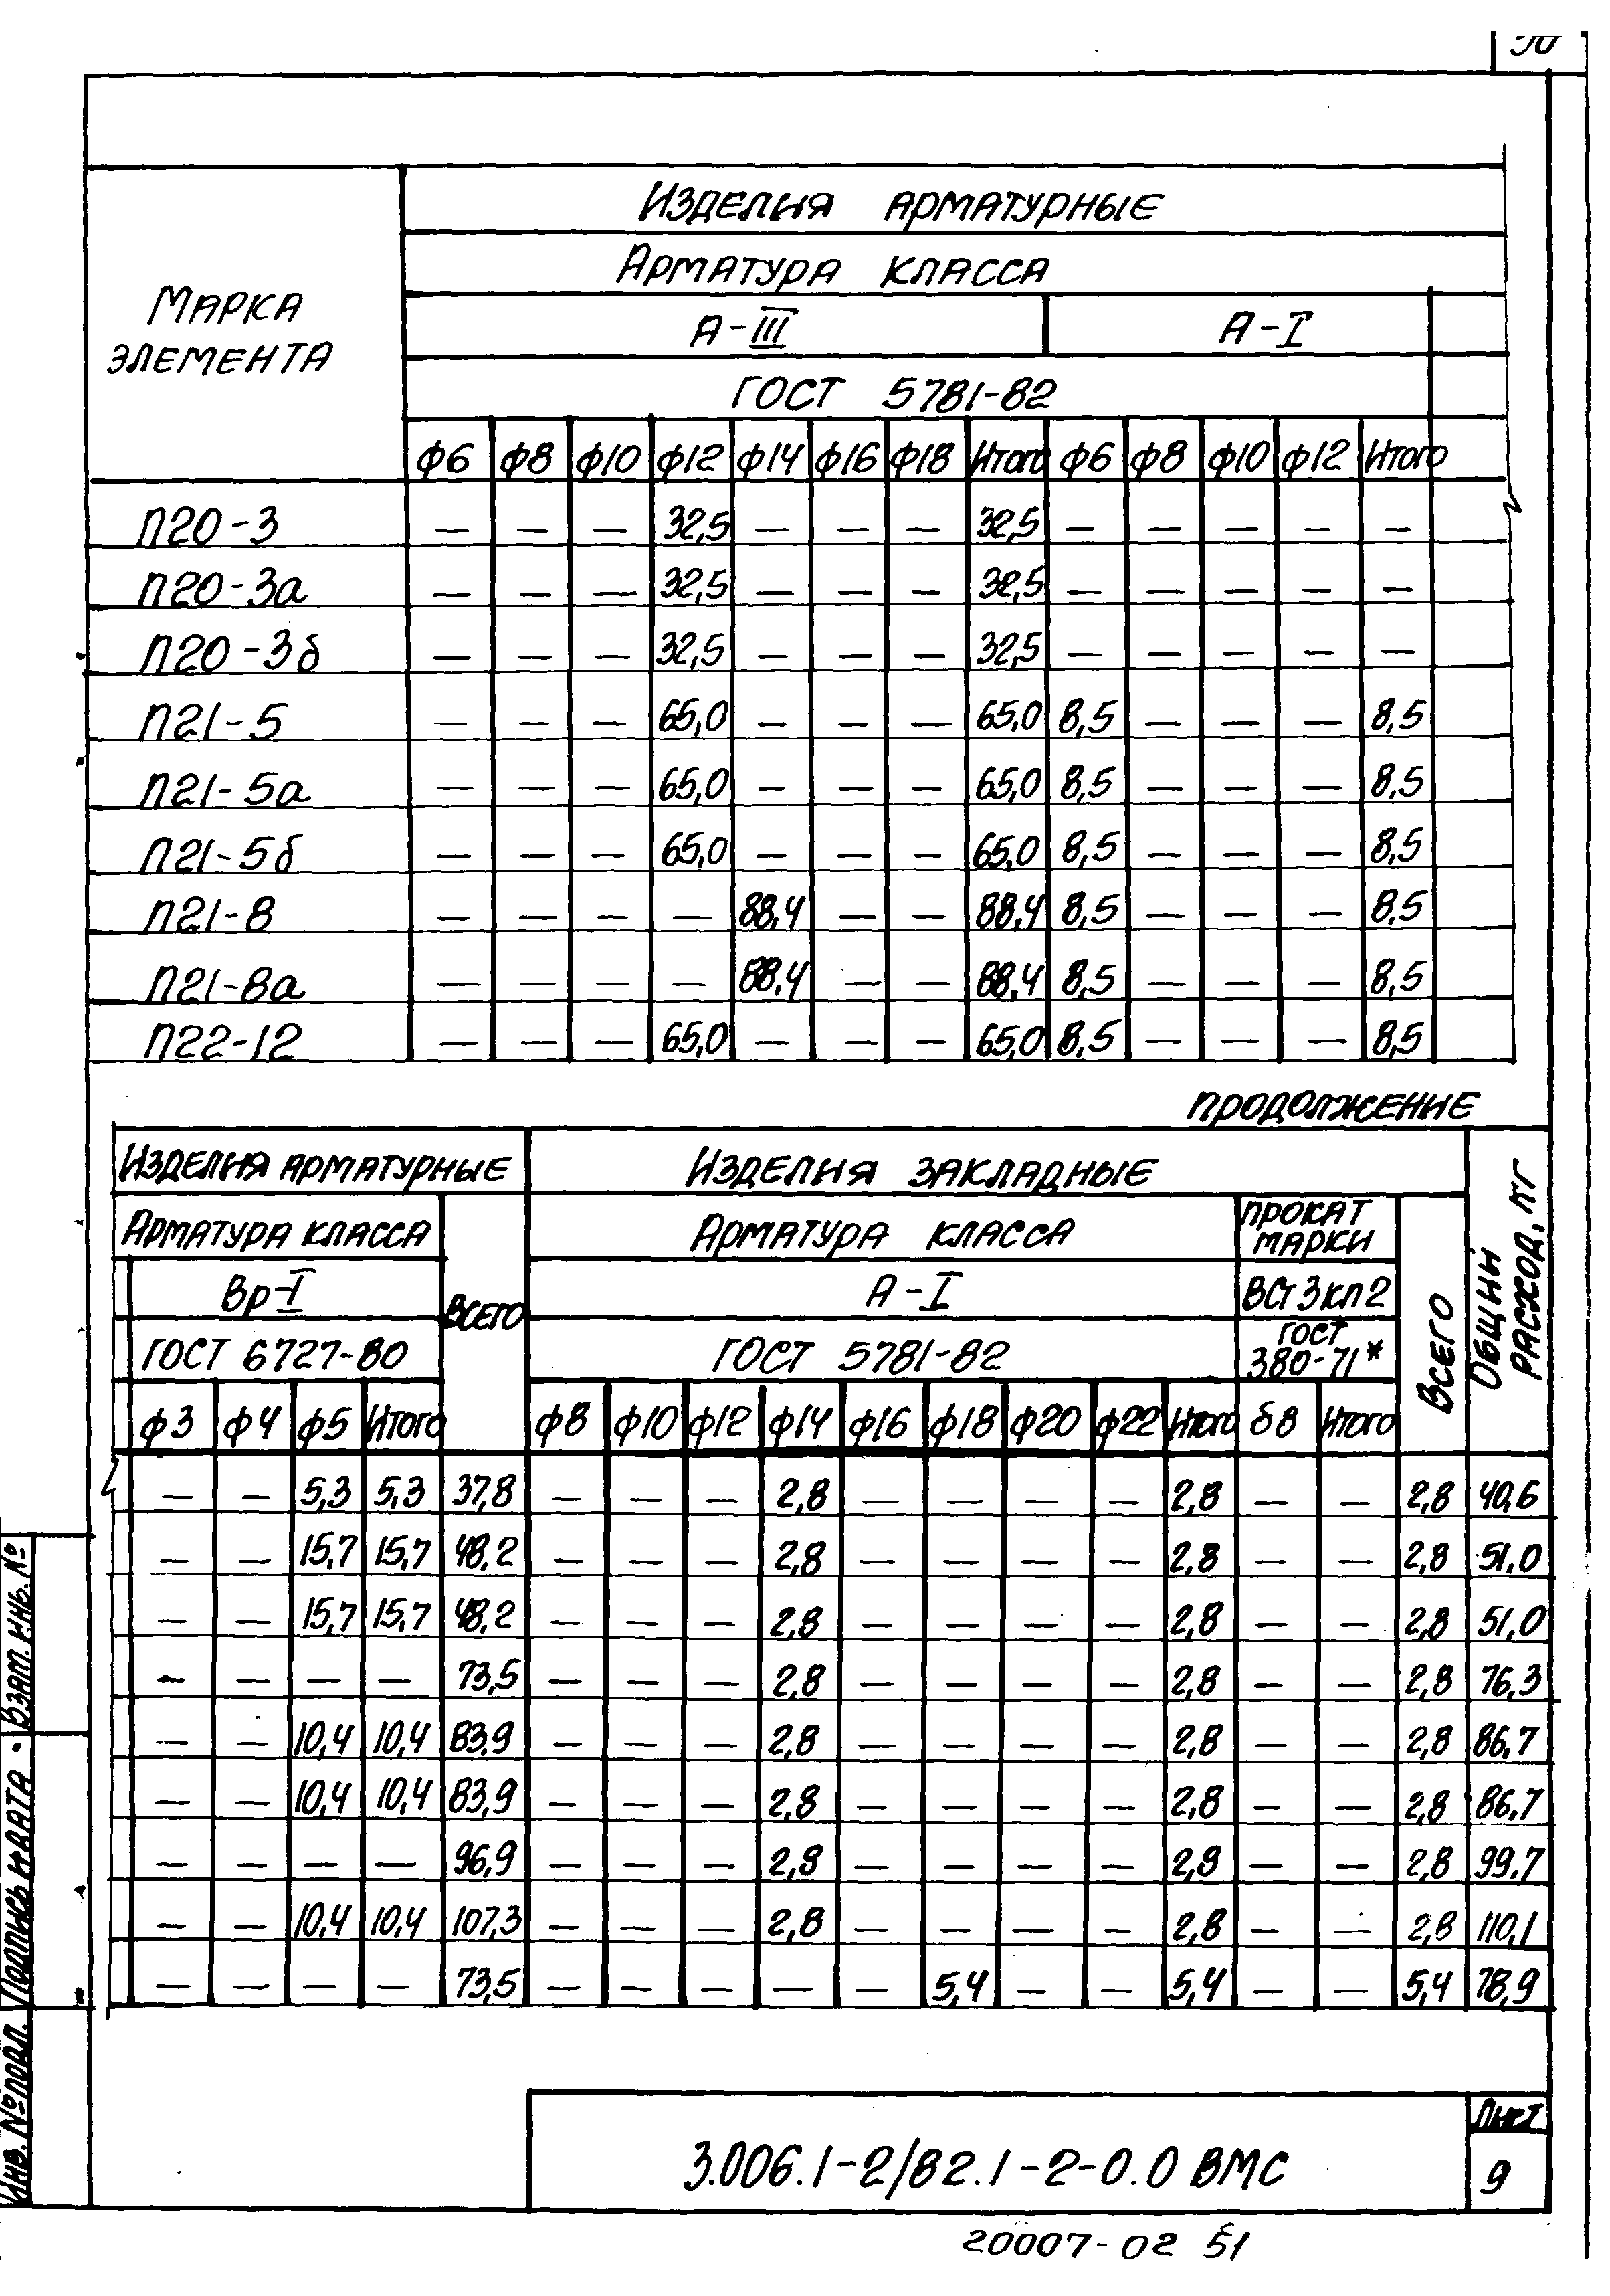 50
Изделия арматурные
Арматура класса
Марка элемента
А-III А-I
ГОСТ 5781-82
ф6 ф8 ф10 ф12 ф14 ф16 ф18 Итого ф6 ф8 ф10 ф12 Итого
П20-3 — — — 32,5 — — — 32,5 — — — — —
П20-3а — — — 32,5 — — — 32,5 — — — — —
П20-3б — — — 32,5 — — — 32,5 — — — — —
П21-5 — — — 65,0 — — — 65,0 8,5 — — — 8,5
П21-5а — — — 65,0 — — — 65,0 8,5 — — — 8,5
П21-5б — — — 65,0 — — — 65,0 8,5 — — — 8,5
П21-8 — — — — 88,4 — — 88,4 8,5 — — — 8,5
П21-8а — — — — 88,4 — — 88,4 8,5 — — — 8,5
П22-12 — — — 65,0 — — — 65,0 8,5 — — — 8,5
продолжение
Изделия арматурные Изделия закладные Общий расход, кг
Арматура класса Всего Арматура класса прокат марки Всего
Вр-I А-I ВСт3кп2
ГОСТ 6727-80 ГОСТ 5781-82 ГОСТ 380-71*
ф3 ф4 ф5 Итого ф8 ф10 ф12 ф14 ф16 ф18 ф20 ф22 Итого δ8 Итого
— — 5,3 5,3 37,8 — — — 2,8 — — — — 2,8 — — 2,8 40,6
— — 15,7 15,7 48,2 — — — 2,8 — — — — 2,8 — — 2,8 51,0
— — 15,7 15,7 48,2 — — — 2,8 — — — — 2,8 — — 2,8 51,0
— — — — 73,5 — — — 2,8 — — — — 2,8 — — 2,8 76,3
— — 10,4 10,4 83,9 — — — 2,8 — — — — 2,8 — — 2,8 86,7
— — 10,4 10,4 83,9 — — — 2,8 — — — — 2,8 — — 2,8 86,7
— — — — 96,9 — — — 2,8 — — — — 2,8 — — 2,8 99,7
— — 10,4 10,4 107,3 — — — 2,8 — — — — 2,8 — — 2,8 110,1
— — — — 73,5 — — — — — 5,4 — — 5,4 — — 5,4 78,9
Взам. инв. №
Подпись и дата
Инв. № подл.
3.006.1-2/82.1-2-0.0 ВМС
Лист
9
20007-02 51